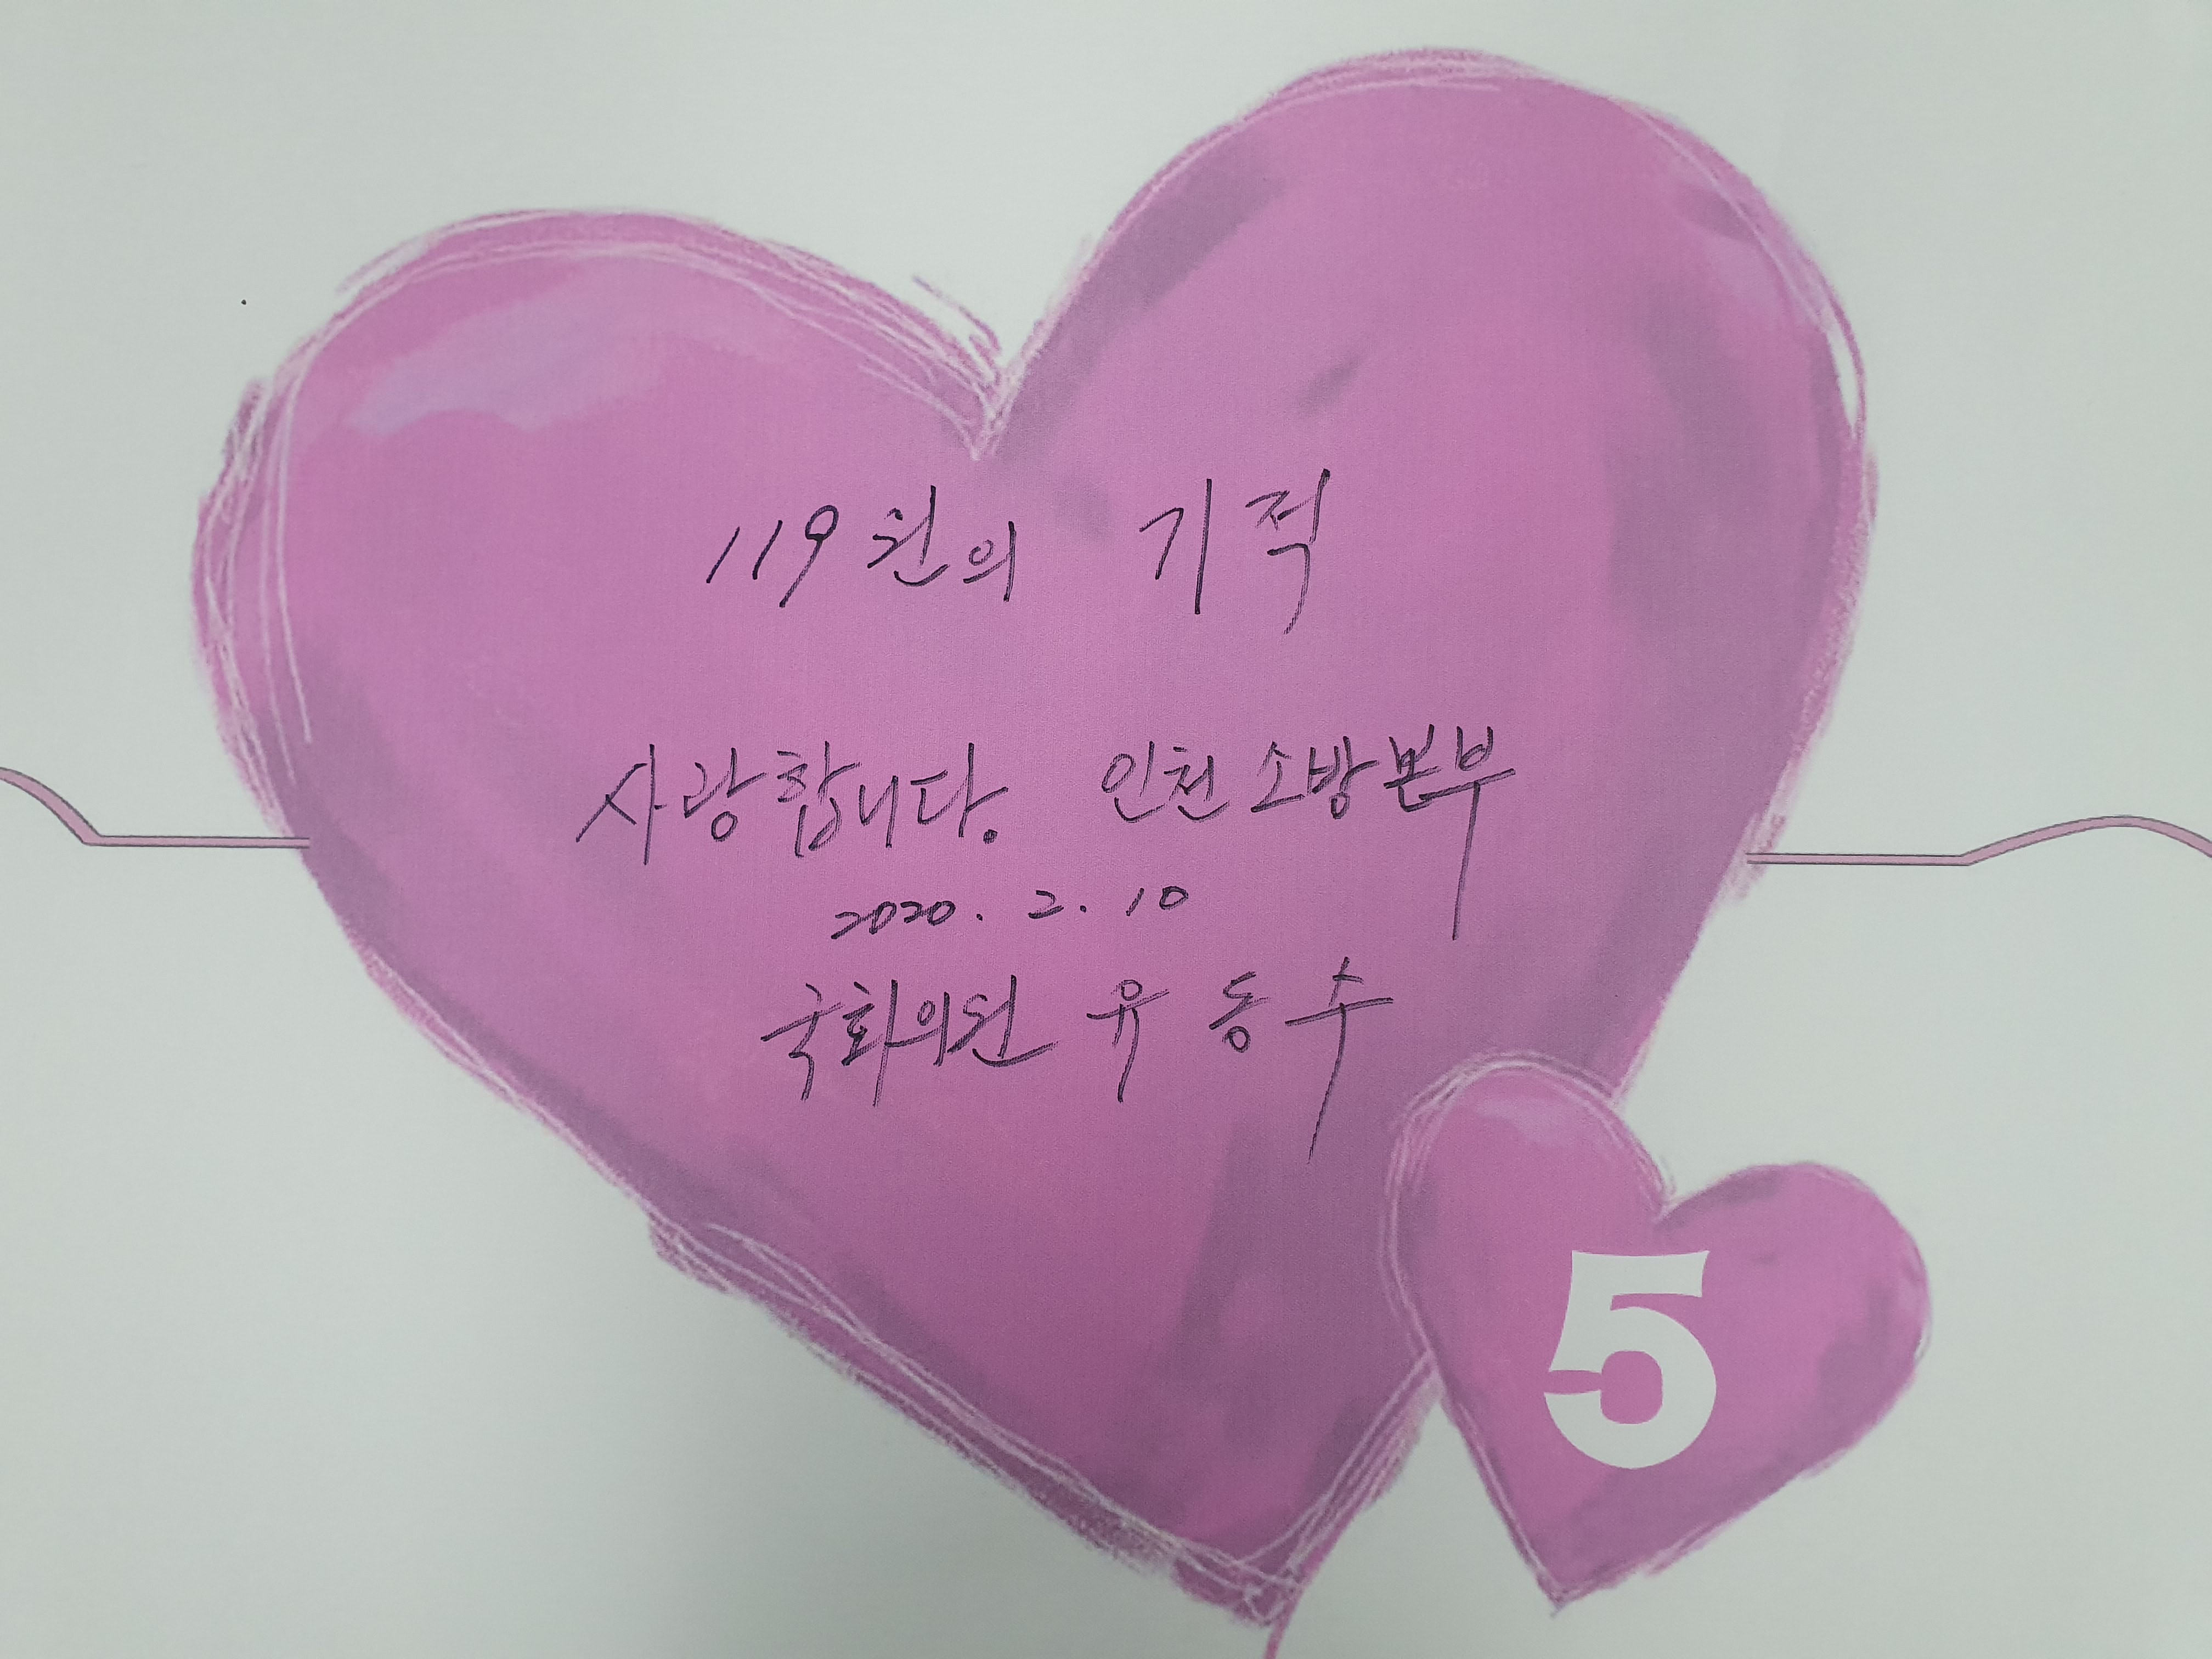 119원의 기적
사랑합니다. 인천소방본부
2020. 2. 10
국회의원 유동수
5